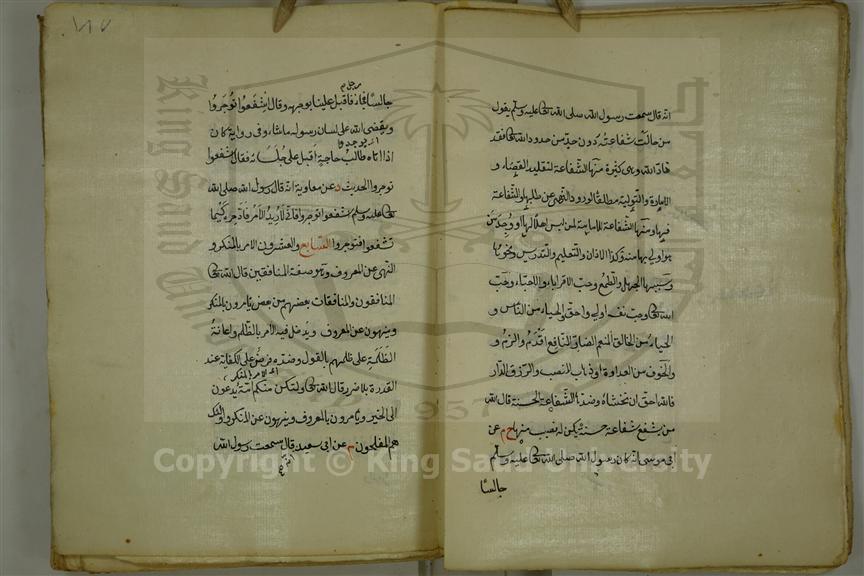 انه قال سمعت رسول الله صلى الله تعالى عليه وسلم يقول
من حالت شفاعته دون حد من حدود الله تعالى فقد
ضاد الله وهى كثيرة منها الشفاعة لتقليد القضاء و
الامارة والتولية مطلقا لورود النهى عن طلبها والشفاعة
فيها ومنها الشفاعة للامامة لمن ليس اهلا لها او وجد من
هو اولى بها منه وكذا الاذان والتعليم والتدريس ونحوها
وسببها الجهل والطمع وحب الاقرباء والاحباء وحب
الله تعالى وحب نفسه اولى واحق والحياء من الناس و
الحياء من الخالق المنعم الضار النافع اقدم والزم و
الخوف من العداوة او ذهاب المنصب والرزق الدار
فالله احق ان تخشاه وضدها الشفاعة الحسنة قال الله
من يشفع شفاعة حسنة يكن له نصيب منها خ م عن
ابى موسى انه كان رسول الله صلى الله تعالى عليه وسلم
جالسا
١٨٧
رجل م
جالسا فجاء فاقبل علينا بوجهه وقال اشفعوا توجروا
ويقضى الله على لسان رسوله ماشاء وفى رواية كان
اذا اتاه طالب حاجة اقبل على جلسائه فقال اشفعوا
توجروا الحديث د عن معاوية انه قال رسول الله صلى الله
تعالى عليه وسلم اشفعوا توجروا فانى لاريد الامر فاؤخره كيما
تشفعوا فتوجروا السابع والعشرون الامر بالمنكر و
النهى عن المعروف وهو صفة المنافقين قال الله تعالى
المنافقون والمنافقات بعضهم من بعض يامرون بالمنكر
وينهون عن المعروف ويدخل فيه الامر بالظلم واعانة
الظلمة على ظلمهم بالقول وضده فرض على الكفاية عند
القدرة بلا ضرر قال الله تعالى ولتكن منكم امة يدعون
الى الخير ويامرون بالمعروف وينهون عن المنكر واولئك
هم المفلحون م عن ابى سعيد قال سمعت رسول الله
Copyright © King Saud University
King Saud
1957